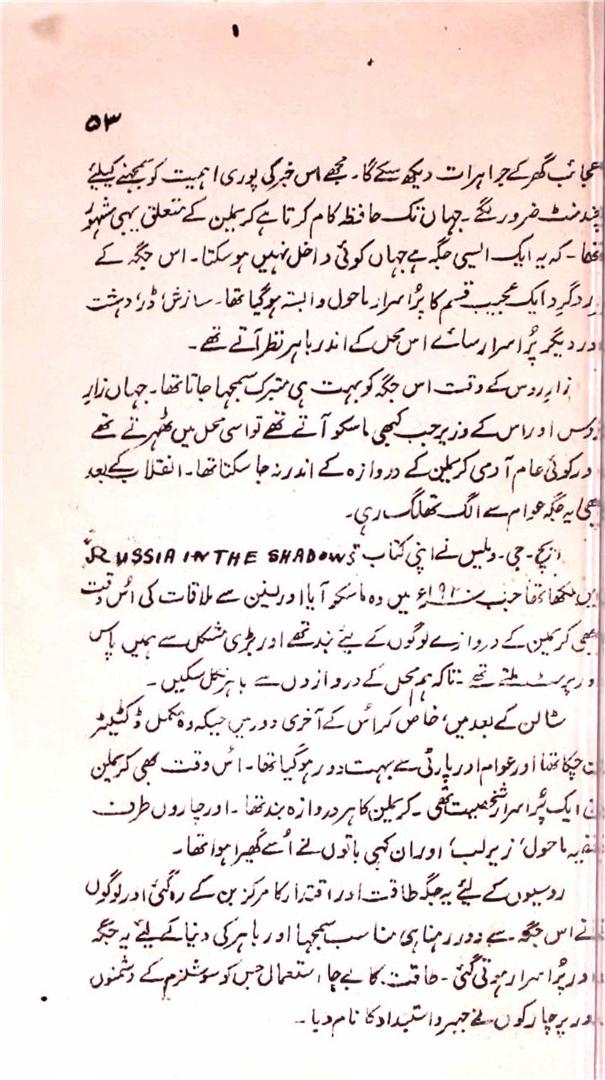 ۵۳
عجائب گھر کے جواہرات دیکھ سکے گا۔ مجھے اس خبر کی پوری اہمیت کو سمجھنے کیلئے
چند منٹ ضرور لگے۔ جہاں تک حافظہ کام کرتا ہے کریملین کے متعلق یہی مشہور
تھا۔ کہ یہ ایک ایسی جگہ ہے جہاں کوئی داخل نہیں ہو سکتا۔ اس جگہ کے
اردگرد ایک عجیب قسم کا پُراسرار ماحول وابستہ ہو گیا تھا۔ سازش، ڈر، دہشت
اور دیگر پُراسرار سائے اس محل کے اندر باہر نظر آتے تھے۔
زارِ روس کے وقت اس جگہ کو بہت ہی متبرک سمجھا جاتا تھا۔ جہاں زارِ
روس اور اس کے وزیر جب کبھی ماسکو آتے تھے تو اسی محل میں ٹھہرتے تھے
اور کوئی عام آدمی کریملین کے دروازہ کے اندر نہ جا سکتا تھا۔ انقلاب کے بعد
بھی یہ جگہ عوام سے الگ تھلگ رہی۔
ایچ۔ جی۔ ویلس نے اپنی کتاب "RUSSIA IN THE SHADOWS"
میں لکھا تھا جب ۱۹۲۰ء میں وہ ماسکو آیا اور لینن سے ملاقات کی اُس وقت
بھی کریملین کے دروازے لوگوں کے لئے بند تھے اور بڑی مشکل سے ہمیں پاس
اور پرمٹ ملتے تھے۔ تاکہ ہم محل کے دروازوں سے باہر نکل سکیں۔
سٹالن کے بعد میں، خاص کر اُس کے آخری دور میں جبکہ وہ مکمل ڈکٹیٹر
بن چکا تھا اور عوام اور پارٹی سے بہت دور ہو گیا تھا۔ اُس وقت بھی کریملین
ایک پُراسرار شخصیت تھی۔ کریملین کا ہر دروازہ بند تھا۔ اور چاروں طرف
خفیہ ماحول، زیر لب، اور ان کہی باتوں نے اُسے گھیرا ہوا تھا۔
روسیوں کے لئے یہ جگہ طاقت اور اقتدار کا مرکز بن کے رہ گئی اور لوگوں
نے اس جگہ سے دور رہنا ہی مناسب سمجھا اور باہر کی دنیا کے لئے یہ جگہ
اور پُراسرار ہوتی گئی۔ طاقت کا بے جا استعمال جس کو سوشلزم کے دشمنوں
اور پرچارکوں نے جبر و استبداد کا نام دیا۔